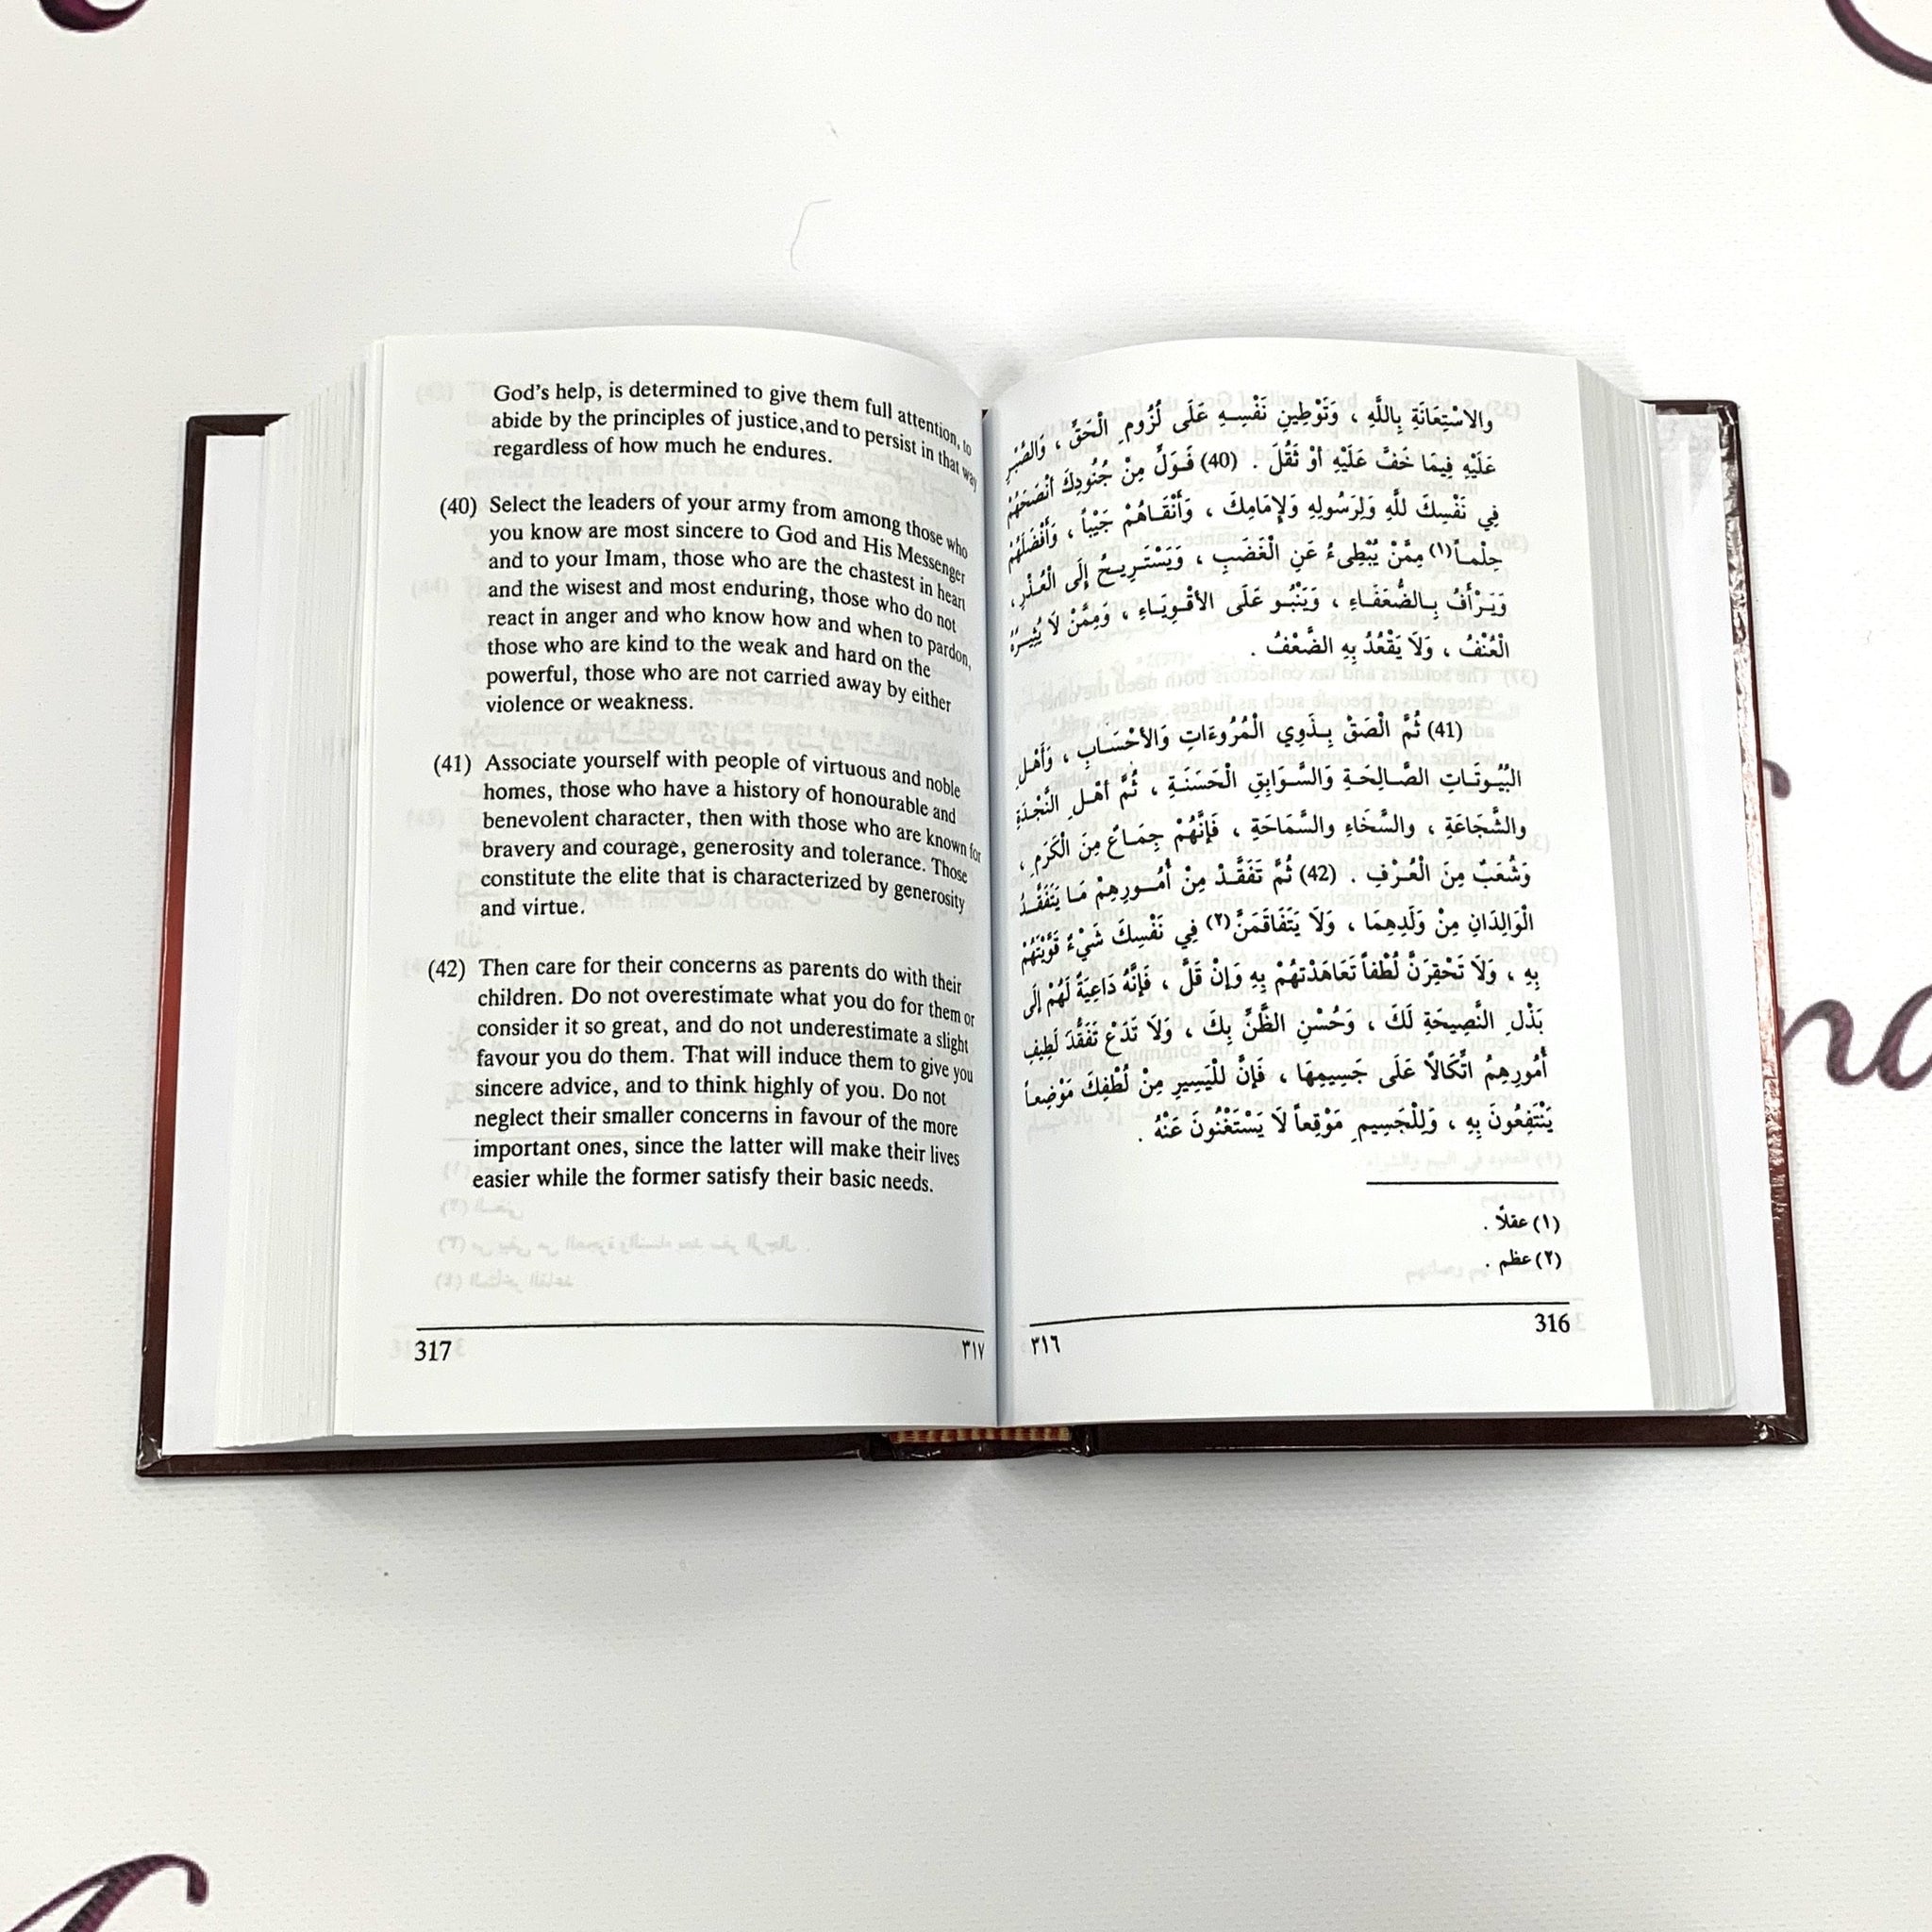 God's help, is determined to give them full attention, to
abide by the principles of justice,and to persist in that way
regardless of how much he endures.
(40) Select the leaders of your army from among those who
you know are most sincere to God and His Messenger
and to your Imam, those who are the chastest in heart
and the wisest and most enduring, those who do not
react in anger and who know how and when to pardon,
those who are kind to the weak and hard on the
powerful, those who are not carried away by either
violence or weakness.
(41) Associate yourself with people of virtuous and noble
homes, those who have a history of honourable and
benevolent character, then with those who are known for
bravery and courage, generosity and tolerance. Those
constitute the elite that is characterized by generosity
and virtue.
(42) Then care for their concerns as parents do with their
children. Do not overestimate what you do for them or
consider it so great, and do not underestimate a slight
favour you do them. That will induce them to give you
sincere advice, and to think highly of you. Do not
neglect their smaller concerns in favour of the more
important ones, since the latter will make their lives
easier while the former satisfy their basic needs.
317 ٣١٧
والاسْتِعَانَةِ بِاللَّهِ ، وَتَوْطِينِ نَفْسِهِ عَلَى لُزُومِ الْحَقِّ ، وَالصَّبْرِ
عَلَيْهِ فِيمَا خَفَّ عَلَيْهِ أوْ ثَقُلَ . (40) فَوَلِّ مِنْ جُنُودِكَ أنْصَحَهُمْ
فِي نَفْسِكَ للَّهِ وَلِرَسُولِهِ وَلإمَامِكَ ، وَأَنْقَاهُمْ جَيْباً ، وَأَفْضَلَهُمْ
حِلْماً(١) مِمَّنْ يُبْطِىءُ عَنِ الْغَضَبِ ، وَيَسْتَرِيحُ إلَى الْعُذْرِ ،
وَيَرْأَفُ بِالضُّعَفَاءِ ، وَيَنْبُو عَلَى الأقْوِيَاءِ ، وَمِمَّنْ لاَ يُثِيرُهُ
الْعُنْفُ ، وَلاَ يَقْعُدُ بِهِ الضَّعْفُ .
(41) ثُمَّ الْصَقْ بِذَوِي الْمُرُوءَاتِ وَالأحْسَابِ ، وَأَهْلِ
البُيُوتَاتِ الصَّالِحَةِ وَالسَّوَابِقِ الْحَسَنَةِ ، ثُمَّ أهْلِ النَّجْدَةِ
والشَّجَاعَةِ ، والسَّخَاءِ والسَّمَاحَةِ ، فَإنَّهُمْ جِمَاعٌ مِنَ الْكَرَمِ ،
وَشُعَبٌ مِنَ الْعُرْفِ . (42) ثُمَّ تَفَقَّدْ مِنْ أُمُورِهِمْ مَا يَتَفَقَّدُ
الْوَالِدَانِ مِنْ وَلَدِهِمَا ، وَلاَ يَتَفَاقَمَنَّ(٢) فِي نَفْسِكَ شَيْءٌ قَوَّيْتَهُمْ
بِهِ ، وَلاَ تَحْقِرَنَّ لُطْفاً تَعَاهَدْتَهُمْ بِهِ وَإنْ قَلَّ ، فَإنَّهُ دَاعِيَةٌ لَهُمْ إلَى
بَذْلِ النَّصِيحَةِ لَكَ ، وَحُسْنِ الظَّنِّ بِكَ ، وَلاَ تَدَعْ تَفَقُّدَ لَطِيفِ
أُمُورِهِمُ اتِّكَالًا عَلَى جَسِيمِهَا ، فَإنَّ للْيَسِيرِ مِنْ لُطْفِكَ مَوْضِعاً
يَنْتَفِعُونَ بِهِ ، وَلِلْجَسِيمِ مَوْقِعاً لاَ يَسْتَغْنُونَ عَنْهُ .
(١) عقلاً .
(٢) عظم .
316 ٣١٦